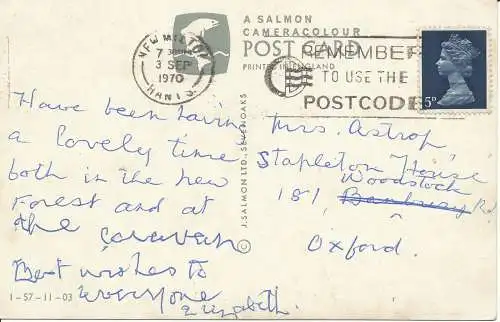 NEW MILTON
7 30PM
3 SEP
1970
HANTS.
A SALMON
CAMERACOLOUR
POST CARD
PRINTED IN ENGLAND
REMEMBER
TO USE THE
POSTCODE
5D
Have been having
a lovely time
both in the new
Forest and at
the caravan
Best wishes to
everyone
Elizabeth.
1-57-11-03
© J. SALMON LTD., SEVENOAKS
Mrs. Astrop
Stapleton House
Woodstock
181 Banbury Rd
Oxford.